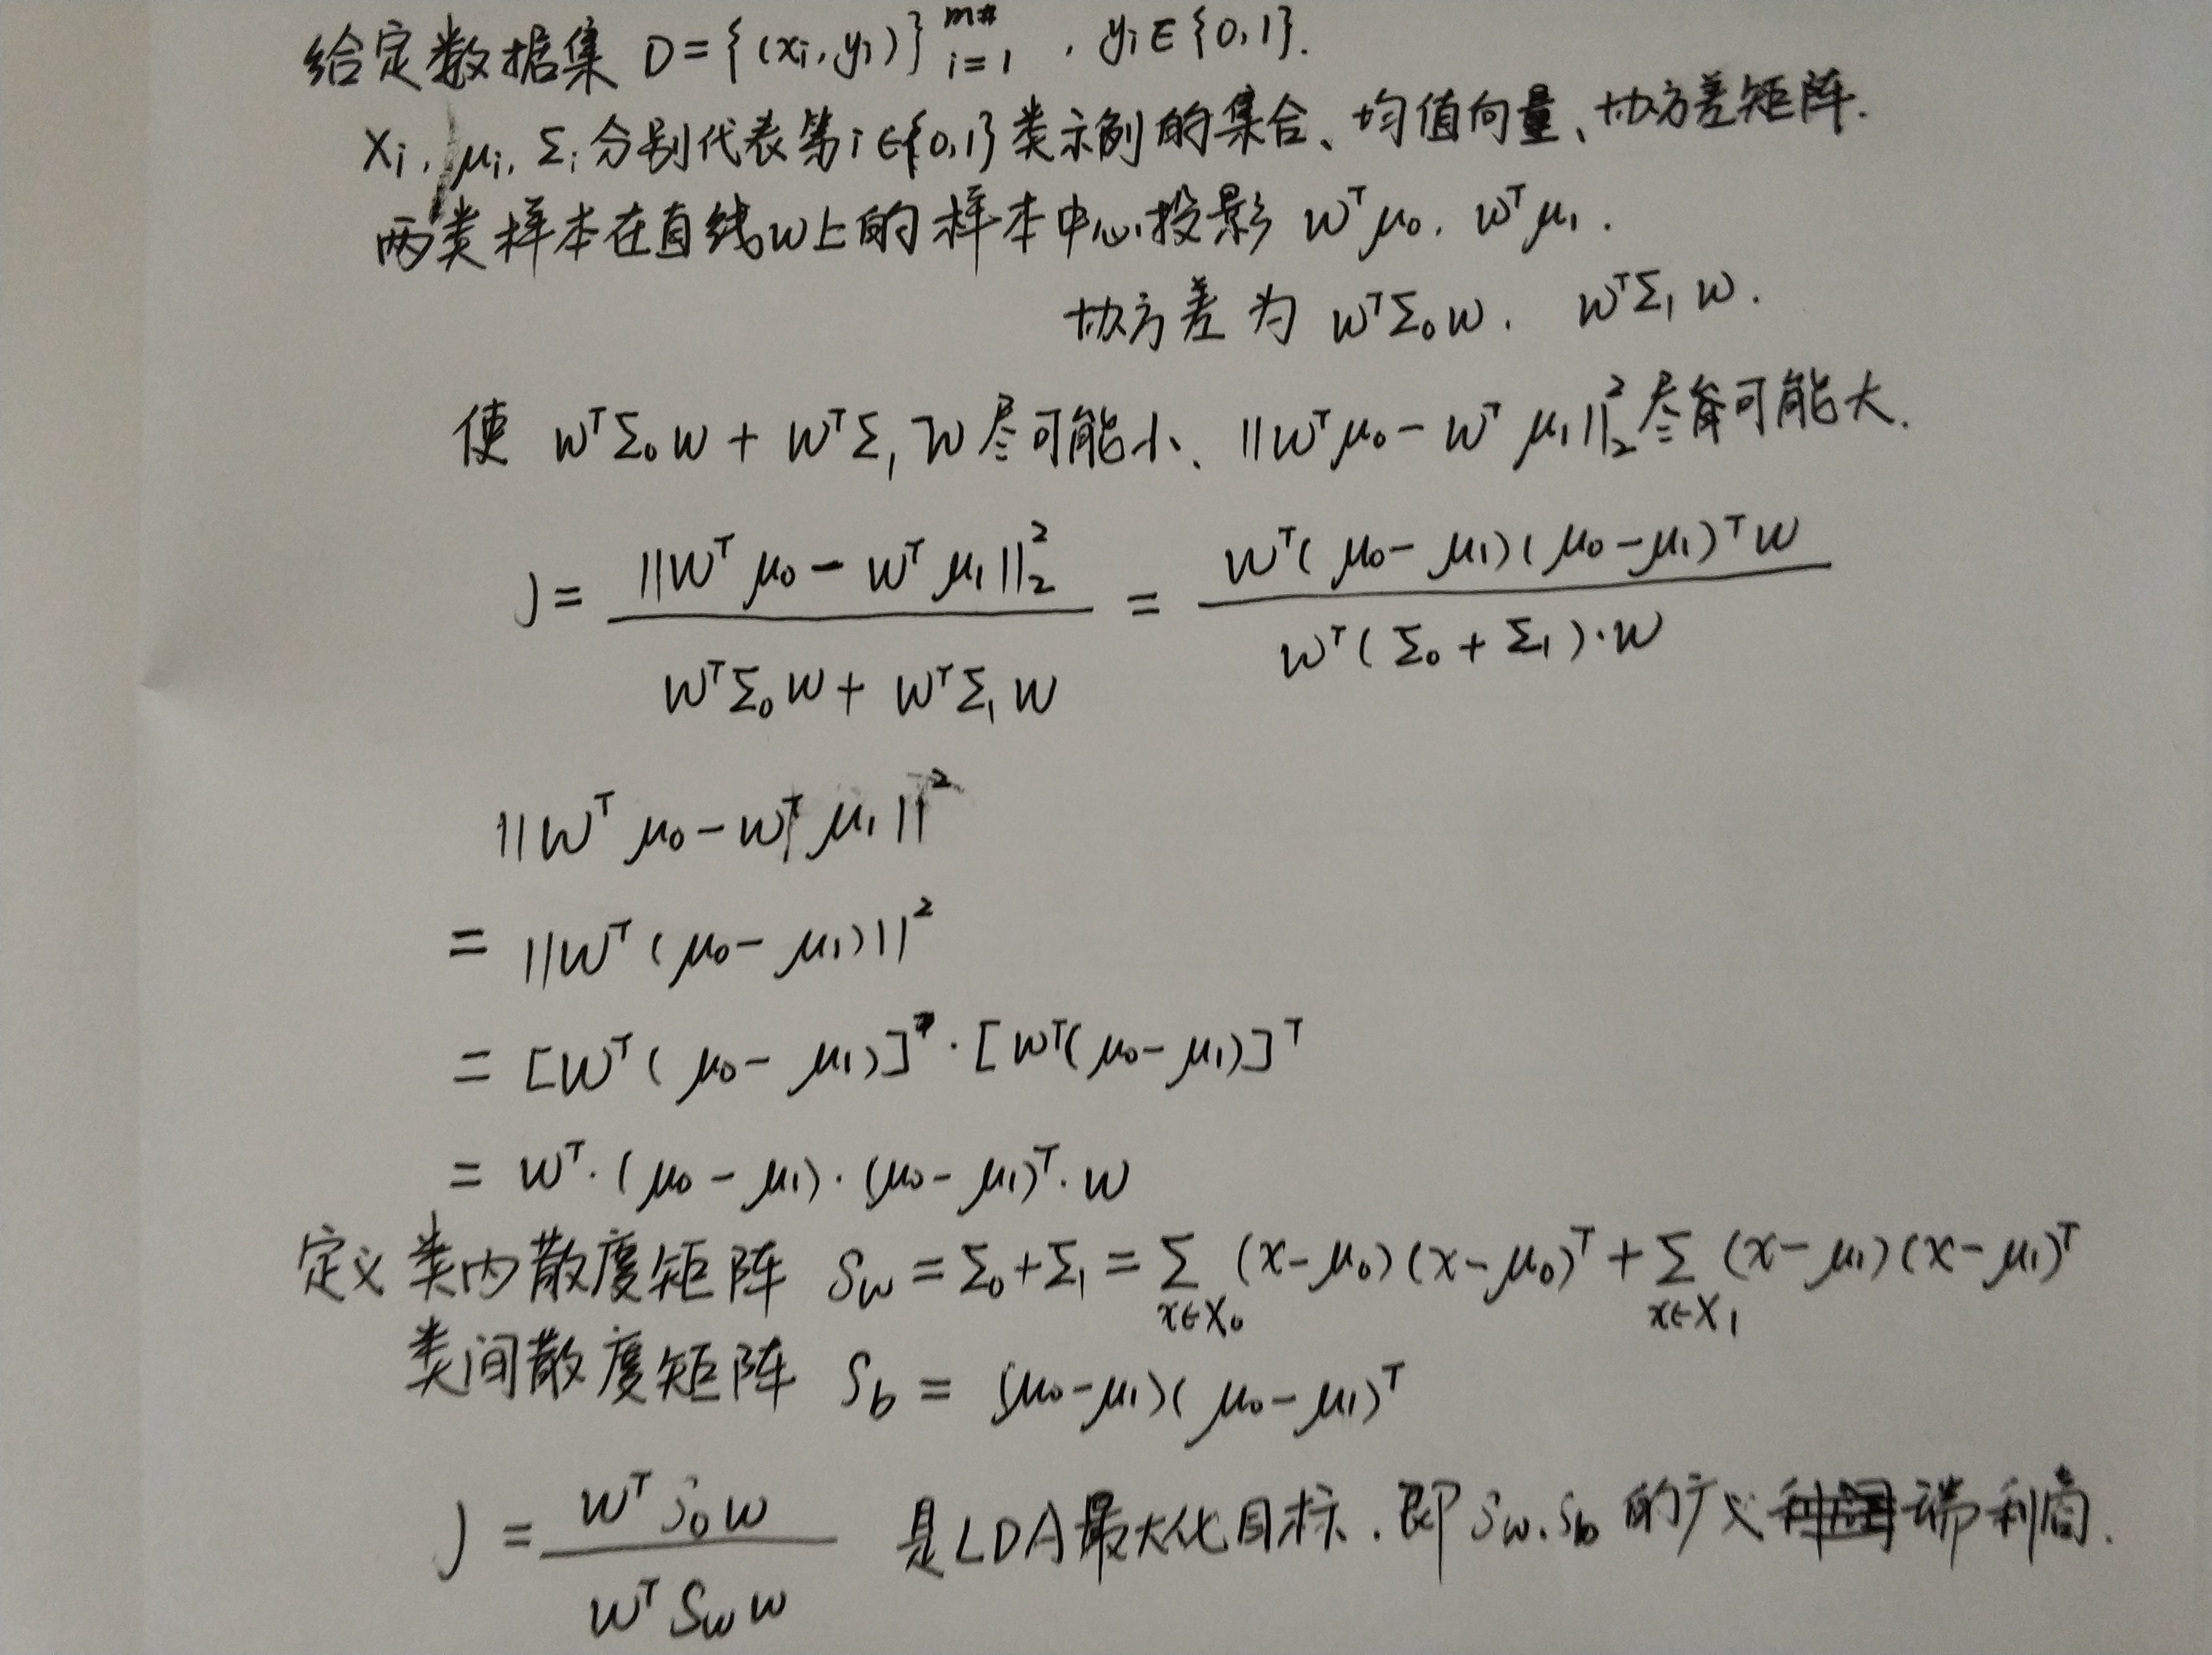 给定数据集 D={(xi,yi)}_{i=1}^{m}, yi∈{0,1}.
Xi, μi, Σi分别代表第i∈{0,1}类示例的集合、均值向量、协方差矩阵.
两类样本在直线w上的样本中心投影 w^Tμ0, w^Tμ1.
协方差为 w^TΣ0w, w^TΣ1w.
使 w^TΣ0w + w^TΣ1w尽可能小、||w^Tμ0 - w^Tμ1||_2^2尽可能大.
J = \frac{||w^Tμ0 - w^Tμ1||_2^2}{w^TΣ0w + w^TΣ1w} = \frac{w^T(μ0 - μ1)(μ0 - μ1)^Tw}{w^T(Σ0 + Σ1)·w}
||w^Tμ0 - w^Tμ1||^2
= ||w^T(μ0 - μ1)||^2
= [w^T(μ0 - μ1)]·[w^T(μ0 - μ1)]^T
= w^T·(μ0 - μ1)·(μ0 - μ1)^T·w
定义类内散度矩阵 Sw = Σ0 + Σ1 = Σ_{x∈X0}(x-μ0)(x-μ0)^T + Σ_{x∈X1}(x-μ1)(x-μ1)^T
类间散度矩阵 Sb = (μ0-μ1)(μ0-μ1)^T
J = \frac{w^T S0 w}{w^T Sw w} 是LDA最大化目标. 即Sw, Sb的广义瑞利商.